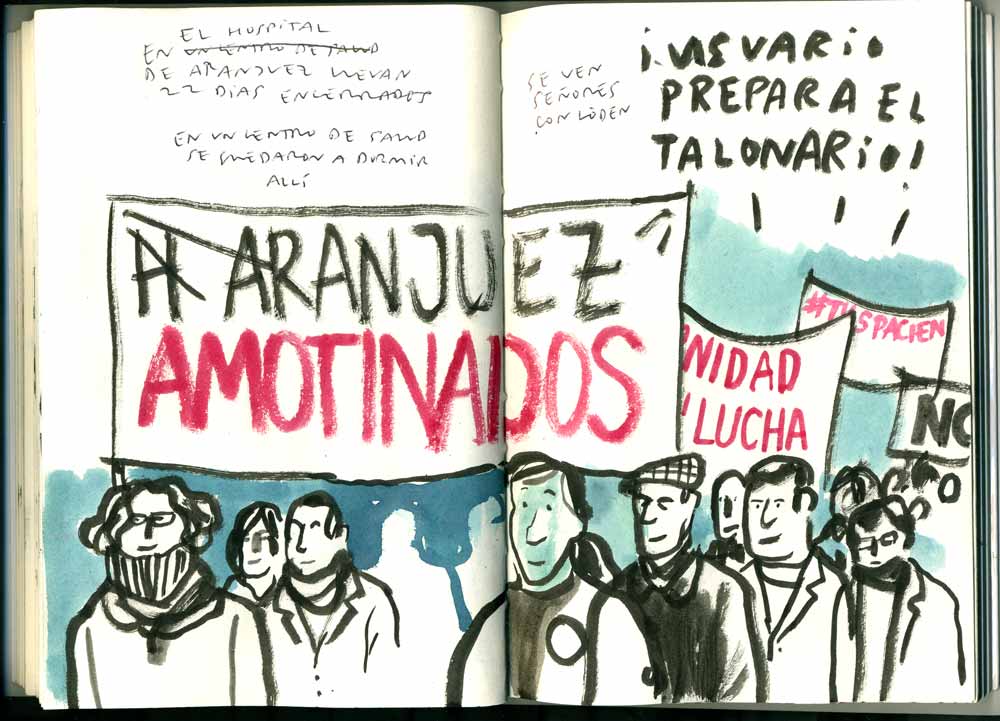 EL HOSPITAL
EN UN CENTRO DE SALUD
DE ARANJUEZ LLEVAN
22 DÍAS ENCERRADOS
EN UN CENTRO DE SALUD
SE QUEDARON A DORMIR
ALLÍ
SE VEN
SEÑORES
CON LÓDEN
PREPARA EL
TALONARiO!
ARANJUEZ
AMOTINADOS
NIDAD
LUCHA
#TUSPACIEN
NO